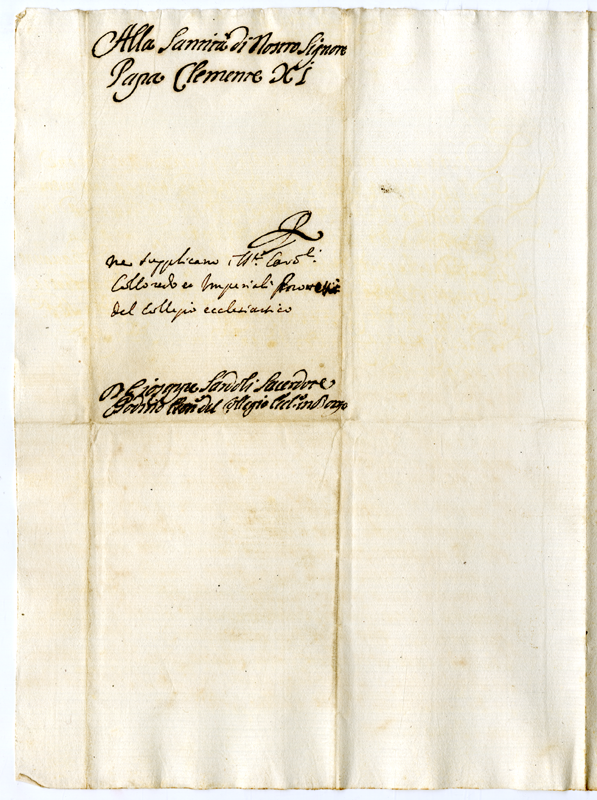 Alla Santità di Nostro Signore
Papa Clemente XI
R
ne supplicano Sig.ri Card.li
Colloredo et Imperiali
del Collegio ecclesiastico
Gioseppe Sardoli Sacerdote
del Collegio Eccl.o